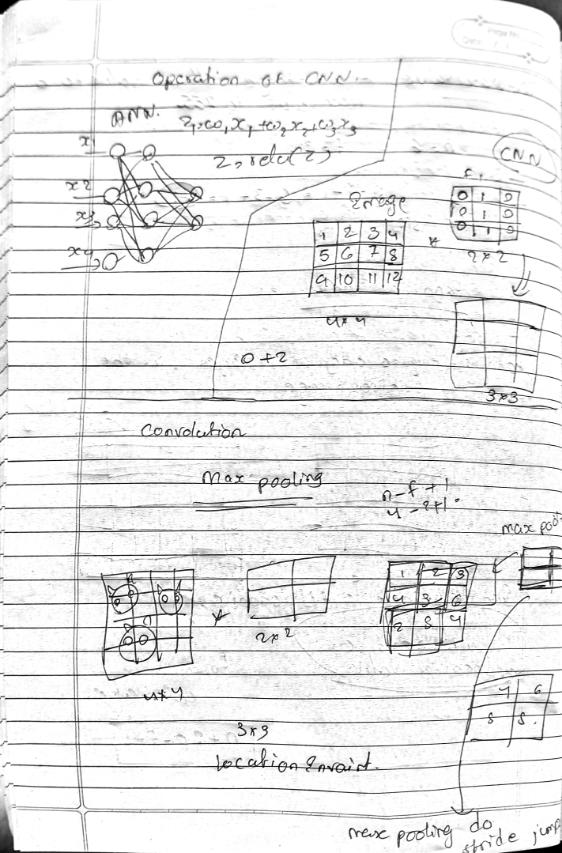 Operation of CNN.
ANN.
z = w1x1 + w2x2 + w3x3
z = relu(z)
x1
x2
x3
x4
CNN
Image
1 2 3 4
5 6 7 8
9 10 11 12
4*4
*
f1
0 1 0
0 1 0
0 1 0
2*2
3*3
0+2
Convolution
Max pooling
n-f+1
4-2+1.
max pooli
*
2*2
4*4
1 2 3
4 3 6
2 8 4
4 6
8 8.
3*3
Location Invaint.
max pooling do
stride jump